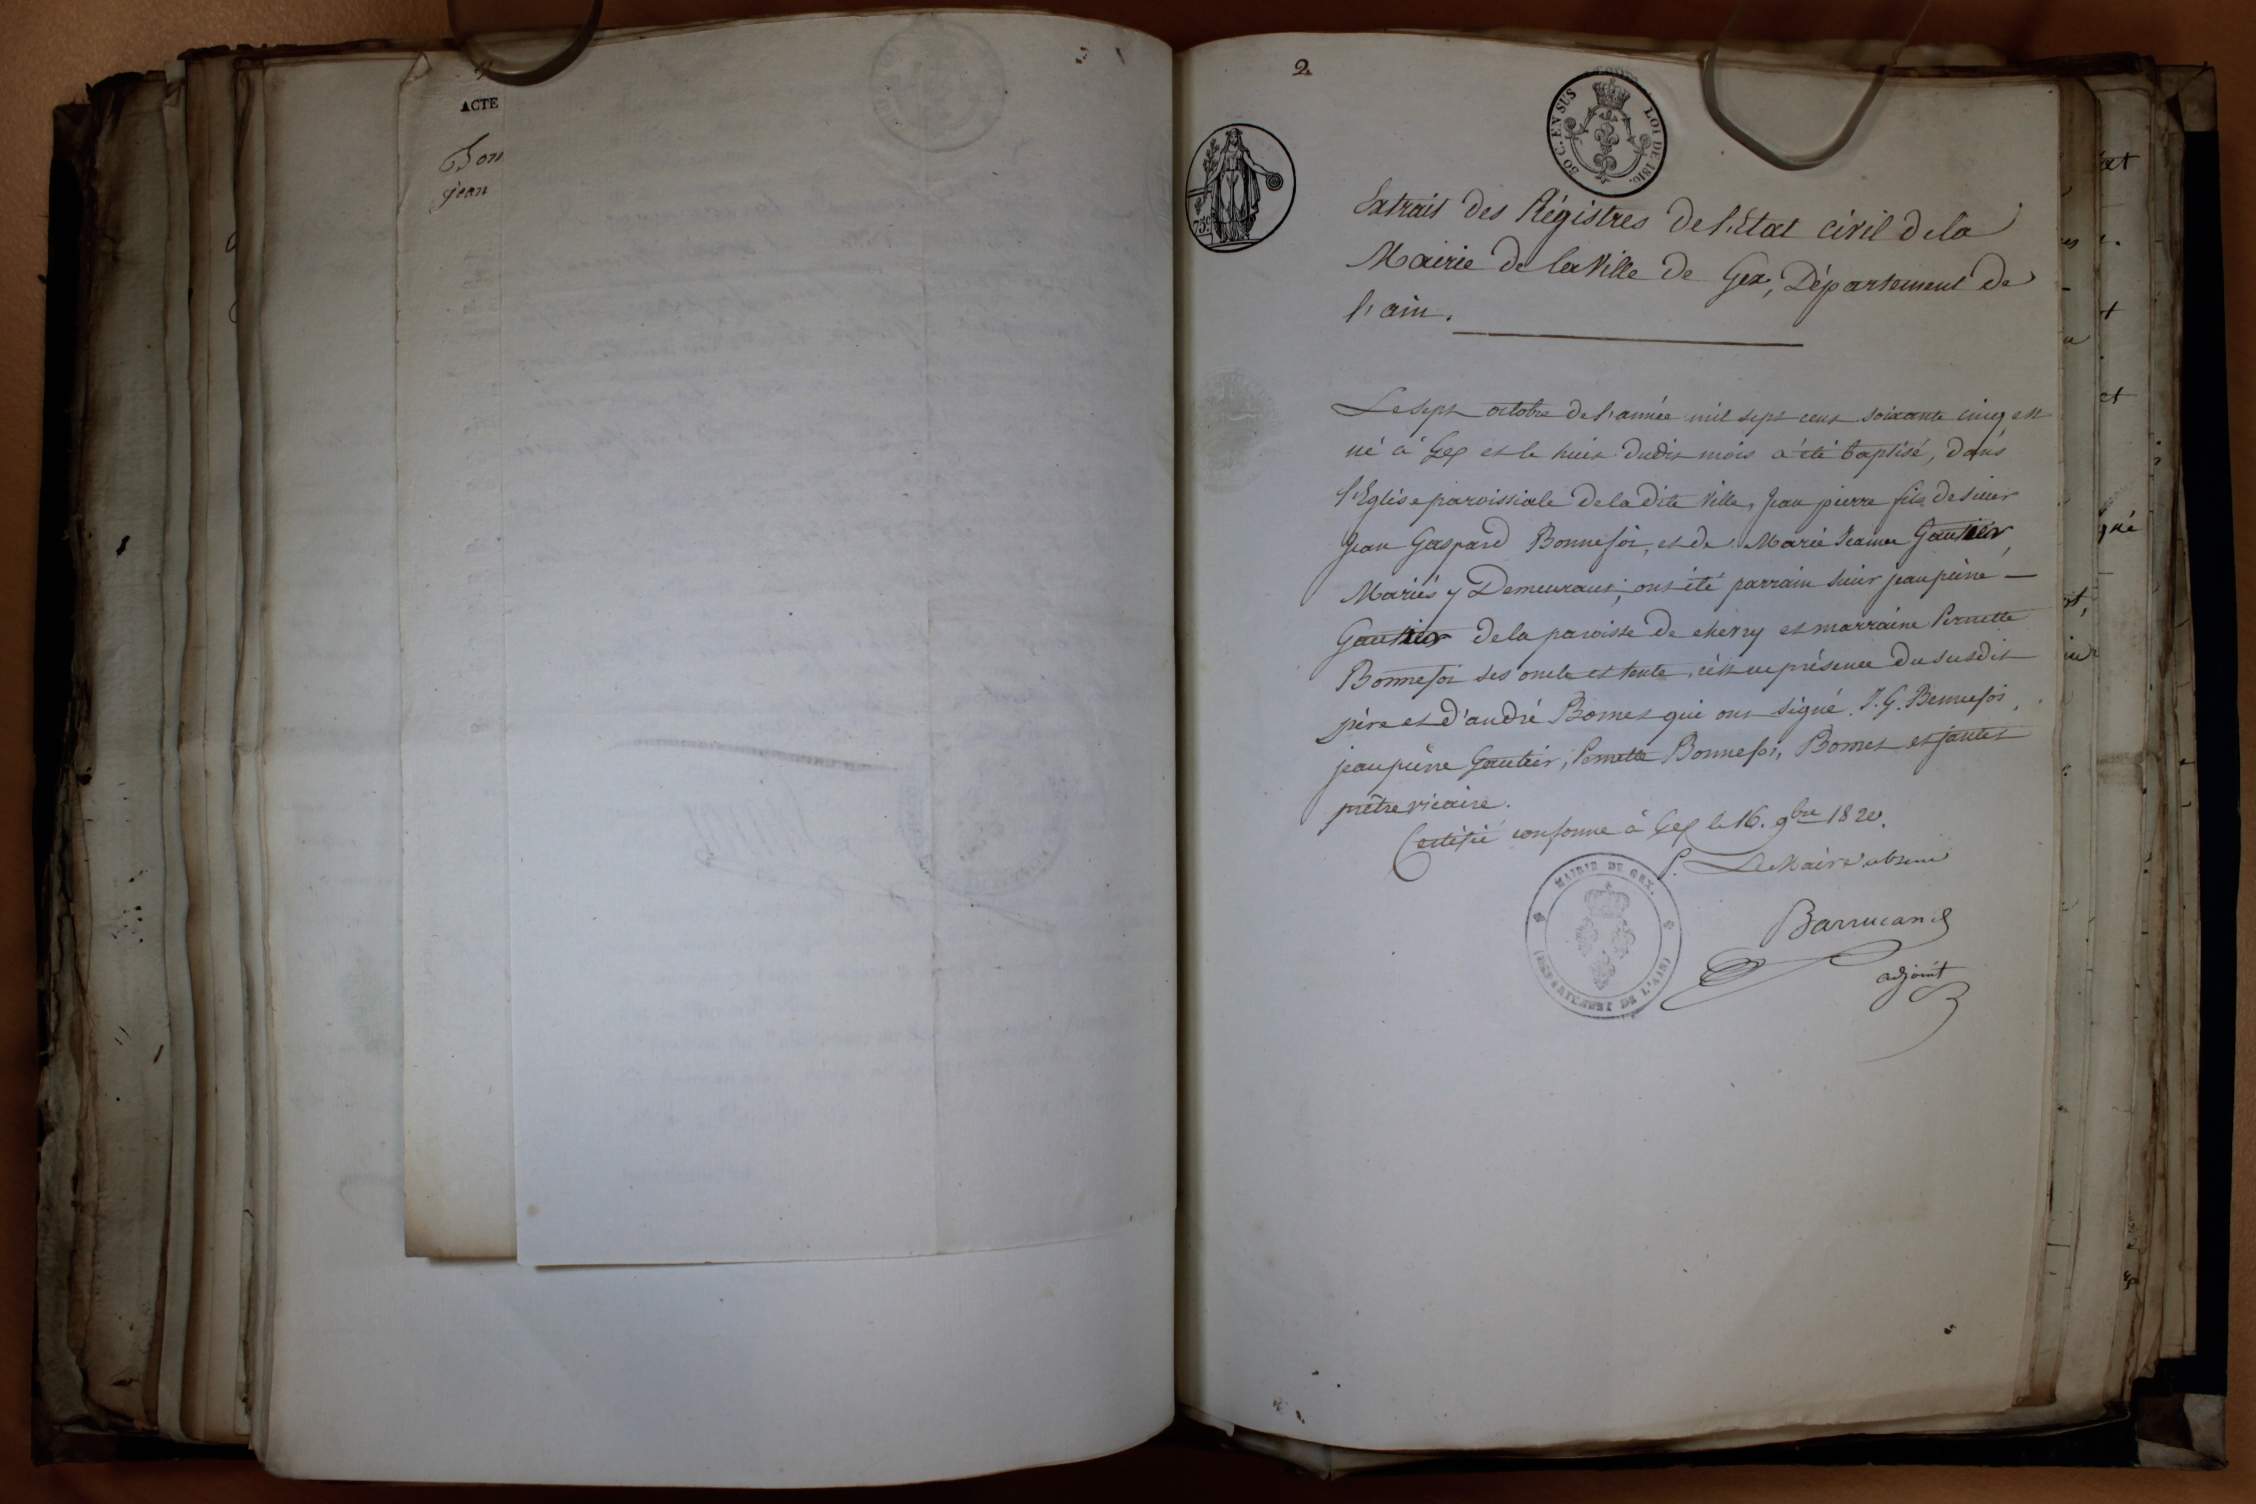 ACTE
Bon
jean
2.
30 C. EN SUS LOI DE 1816.
75 c.
Extrait des Régistres de l'état civil de la
Mairie de la Ville de Gex, Département de
l'ain.
Le sept octobre de l'année mil sept cent soixante cinq est
né à Gex et le huit dudit mois a été baptisé, dans
l'Eglise paroissiale de la dite Ville, Jean pierre fils de sieur
Jean Gaspard Bonnefoi, et de Marie Jeanne Gautier
Mariés y Demeurant; ont été parrain sieur jean pierre —
Gautier de la paroisse de chevry et marraine Pernette
Bonnefoi ses oncle et tante, c'est en présence du susdit
père et d'andré Bornet qui ont signé. J. G. Bonnefoi,
jean pierre Gautier, Pernette Bonnefoi, Bornet et
prêtre vicaire.
Certifié conforme à Gex le 16. 9bre 1820.
P. Le Maire absent
Barrucand
adjoint
MAIRIE DE GEX.
(DÉPARTEMENT DE L'AIN)